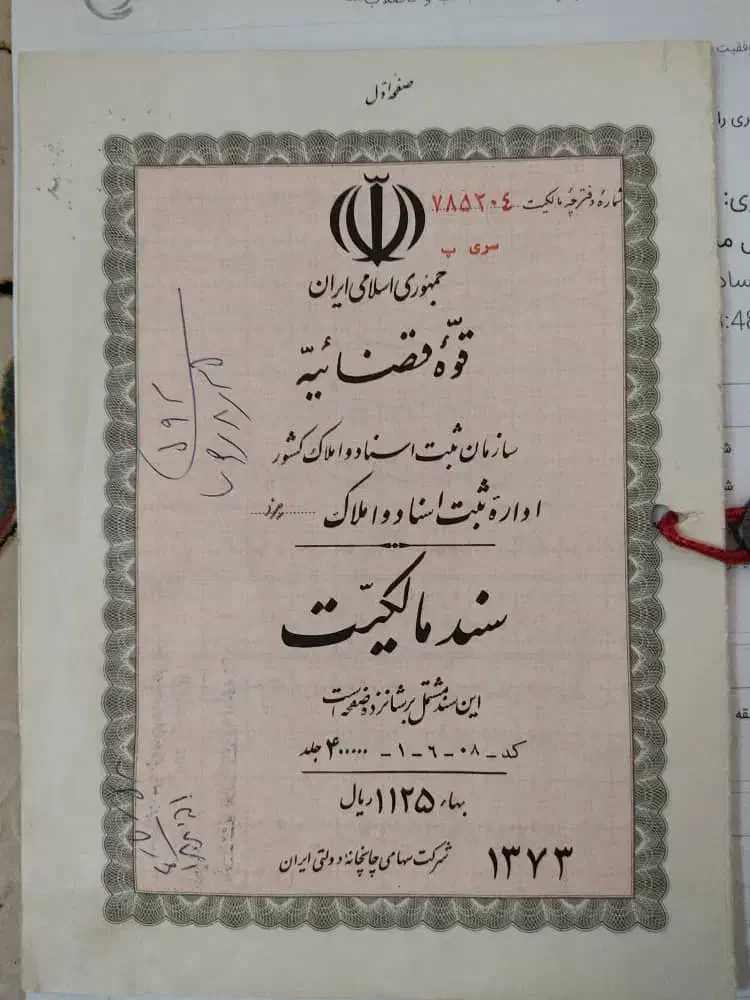 صفحهٔ اول
شمارهٔ دفترچهٔ مالکیت ۷۸۵۲۰۴
سری پ
جمهوری اسلامی ایران
قوّهٔ قضائیّه
سازمان ثبت اسناد و املاک کشور
ادارهٔ ثبت اسناد و املاک
سند مالکیّت
این سند مشتمل بر شانزده صفحه است
کد ـ ۰۸ ـ ۶ ـ ۱ ـ ۴۰۰۰۰۰ جلد
بهاء ۱۱۲۵ ریال
۱۳۷۳ شرکت سهامی چاپخانهٔ دولتی ایران